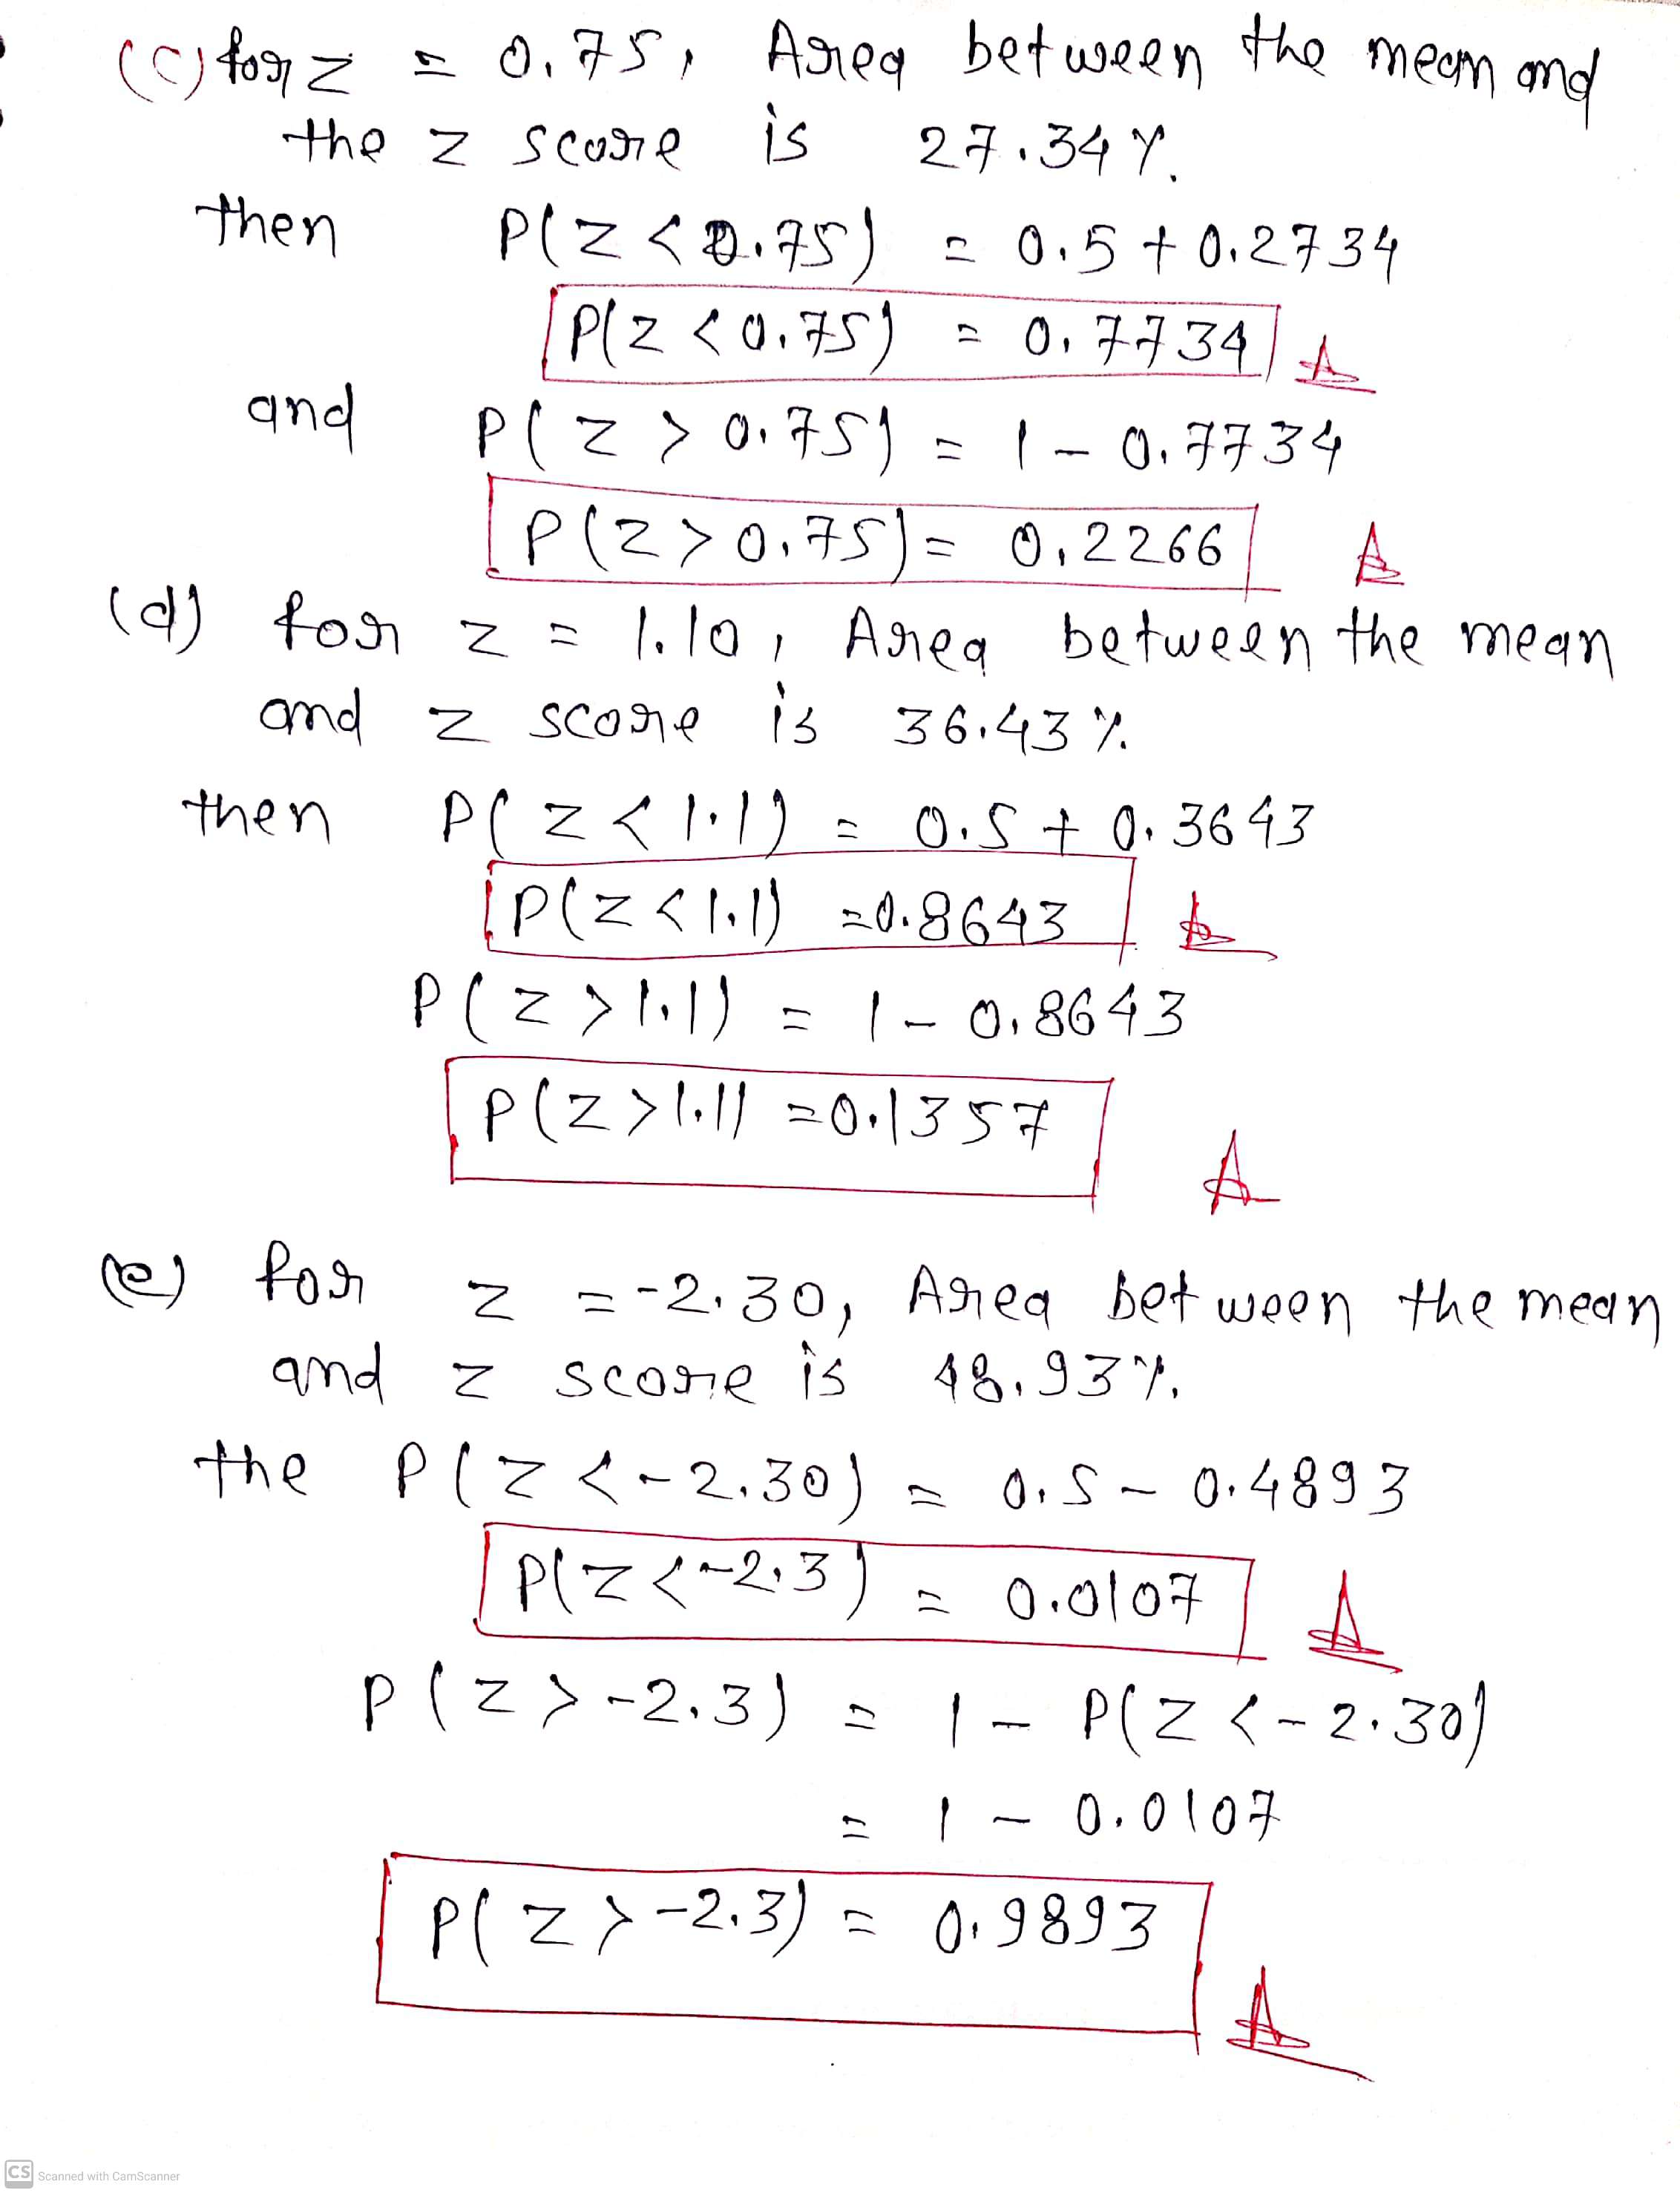 (c) for z = 0.75, Area between the mean and
the z score is 27.34%.
then P(Z < 0.75) = 0.5 + 0.2734
P(Z < 0.75) = 0.7734
and P(Z > 0.75) = 1 - 0.7734
P(Z > 0.75) = 0.2266
(d) for z = 1.10, Area between the mean
and z score is 36.43%.
then P(Z < 1.1) = 0.5 + 0.3643
P(Z < 1.1) = 0.8643
P(Z > 1.1) = 1 - 0.8643
P(Z > 1.1) = 0.1357
(e) for z = -2.30, Area between the mean
and z score is 48.93%.
the P(Z < -2.30) = 0.5 - 0.4893
P(Z < -2.3) = 0.0107
P(Z > -2.3) = 1 - P(Z < -2.30)
= 1 - 0.0107
P(Z > -2.3) = 0.9893
CS Scanned with CamScanner